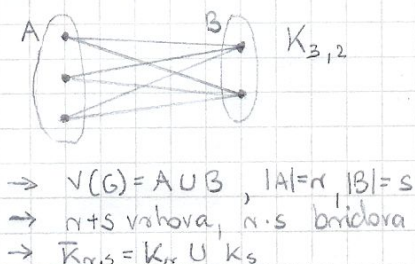 A B K₃,₂
→ V(G) = A ∪ B, |A|=r, |B|=s
→ r+s vrhova, r·s bridova
→ K̅ᵣ,ₛ = Kᵣ ∪ Kₛ